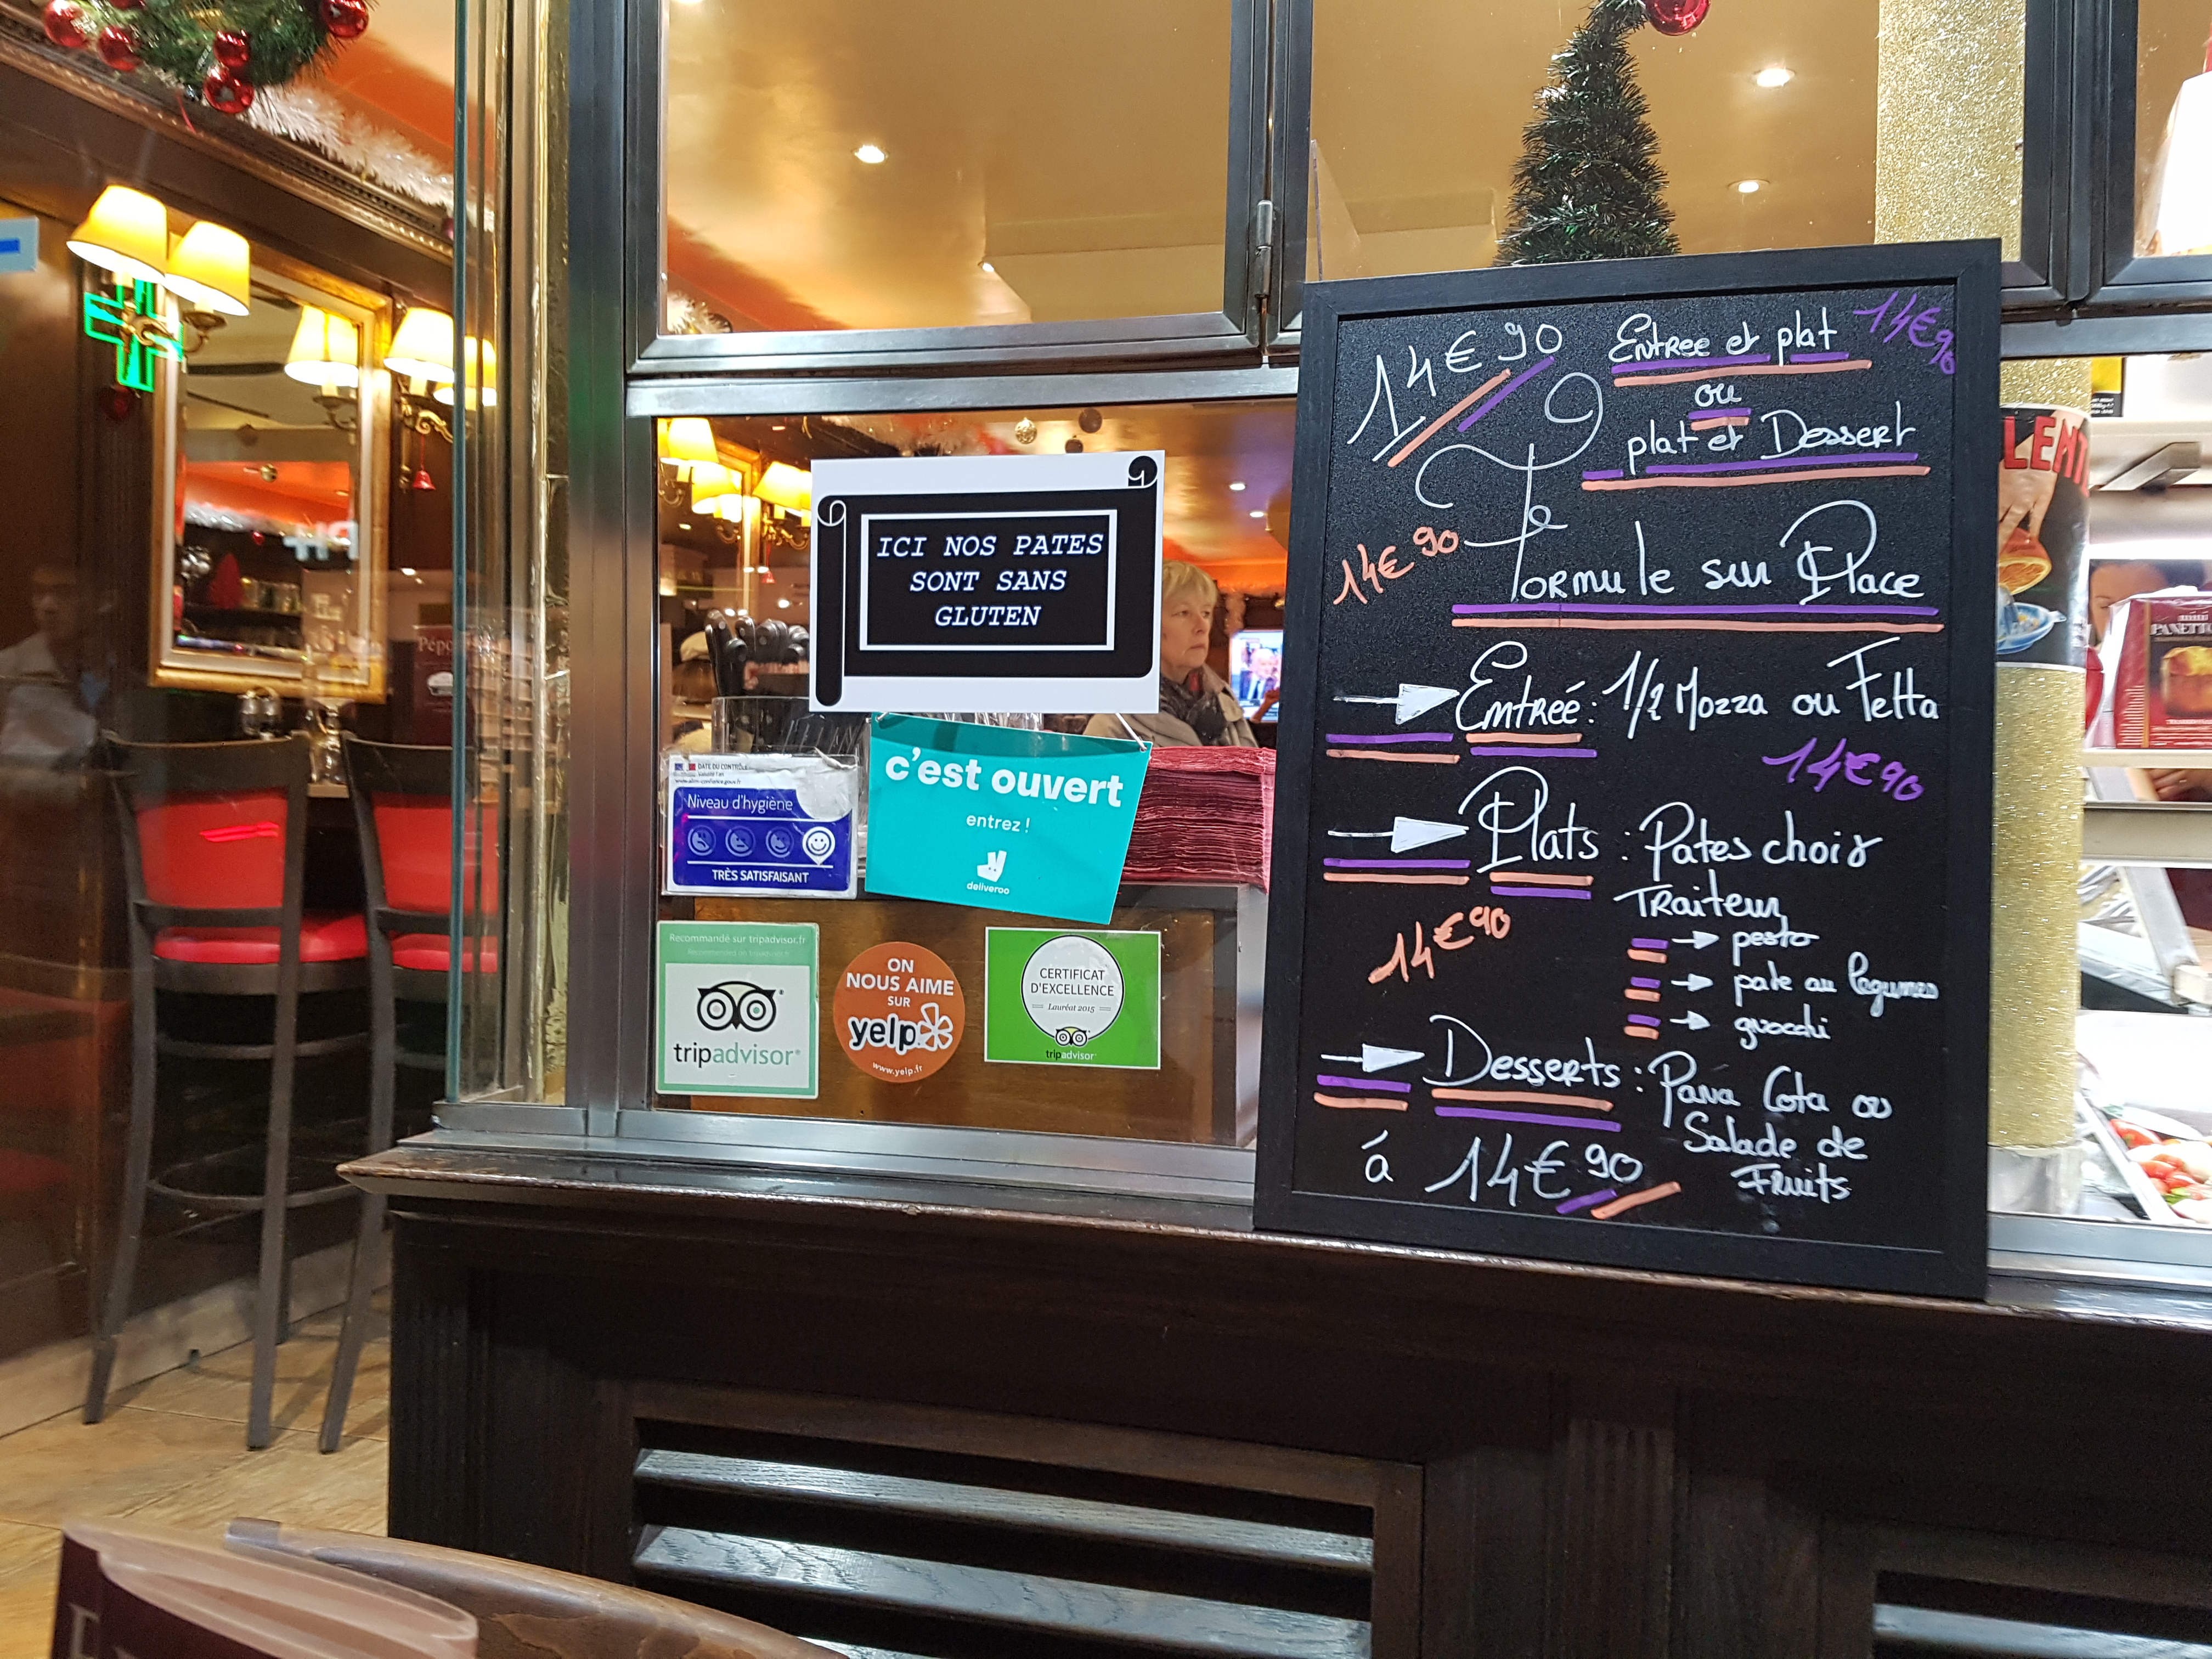 ICI NOS PATES
SONT SANS
GLUTEN
c'est ouvert
entrez !
deliveroo
DATE DU CONTRÔLE
Niveau d'hygiène
TRÈS SATISFAISANT
Recommandé sur tripadvisor.fr
tripadvisor
ON
NOUS AIME
SUR
yelp
www.yelp.fr
CERTIFICAT
D'EXCELLENCE
Lauréat 2015
tripadvisor
14€90
Entree et plat
14€90
ou
plat et Dessert
14€90
Formule sur Place
Entreé: 1/2 Mozza ou Fetta
14€90
Plats : Pates choix
Traiteur
pesto
pate au legumes
gnocchi
14€90
Desserts : Pana Cota ou
Salade de
Fruits
á 14€90